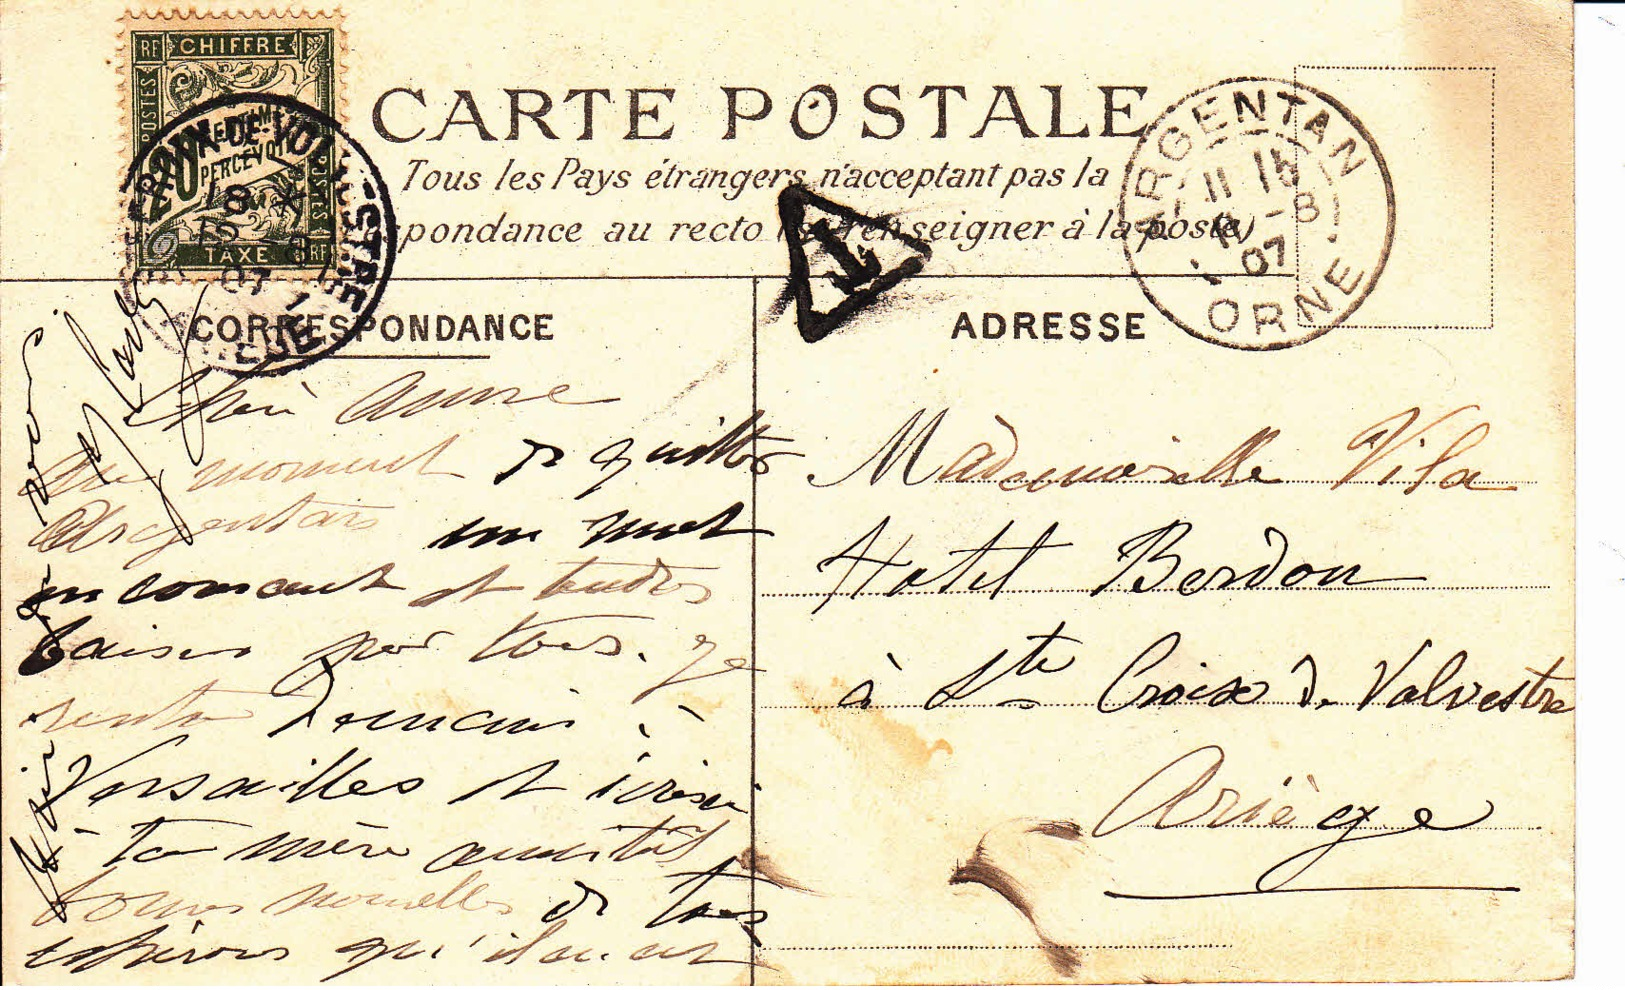 RF CHIFFRE
POSTES
PERCEVOIR
TAXE RF
CARTE POSTALE
Tous les Pays étrangers n'acceptant pas la
pondance au recto seigner à la poste)
T
ARGENTAN
11 15
-8
07
ORNE
CORRESPONDANCE
ADRESSE
Anne
Au moment de quitter
Argentan un mot
en courant et tendres
baisers pour tous. Je
rentre demain à
Versailles et écrirai
à ta mère aussitôt
bonnes nouvelles de tous
espérons qu'il en est
Mademoiselle Vila
Hotel Berdon
à Ste Croix de Volvestre
Ariège